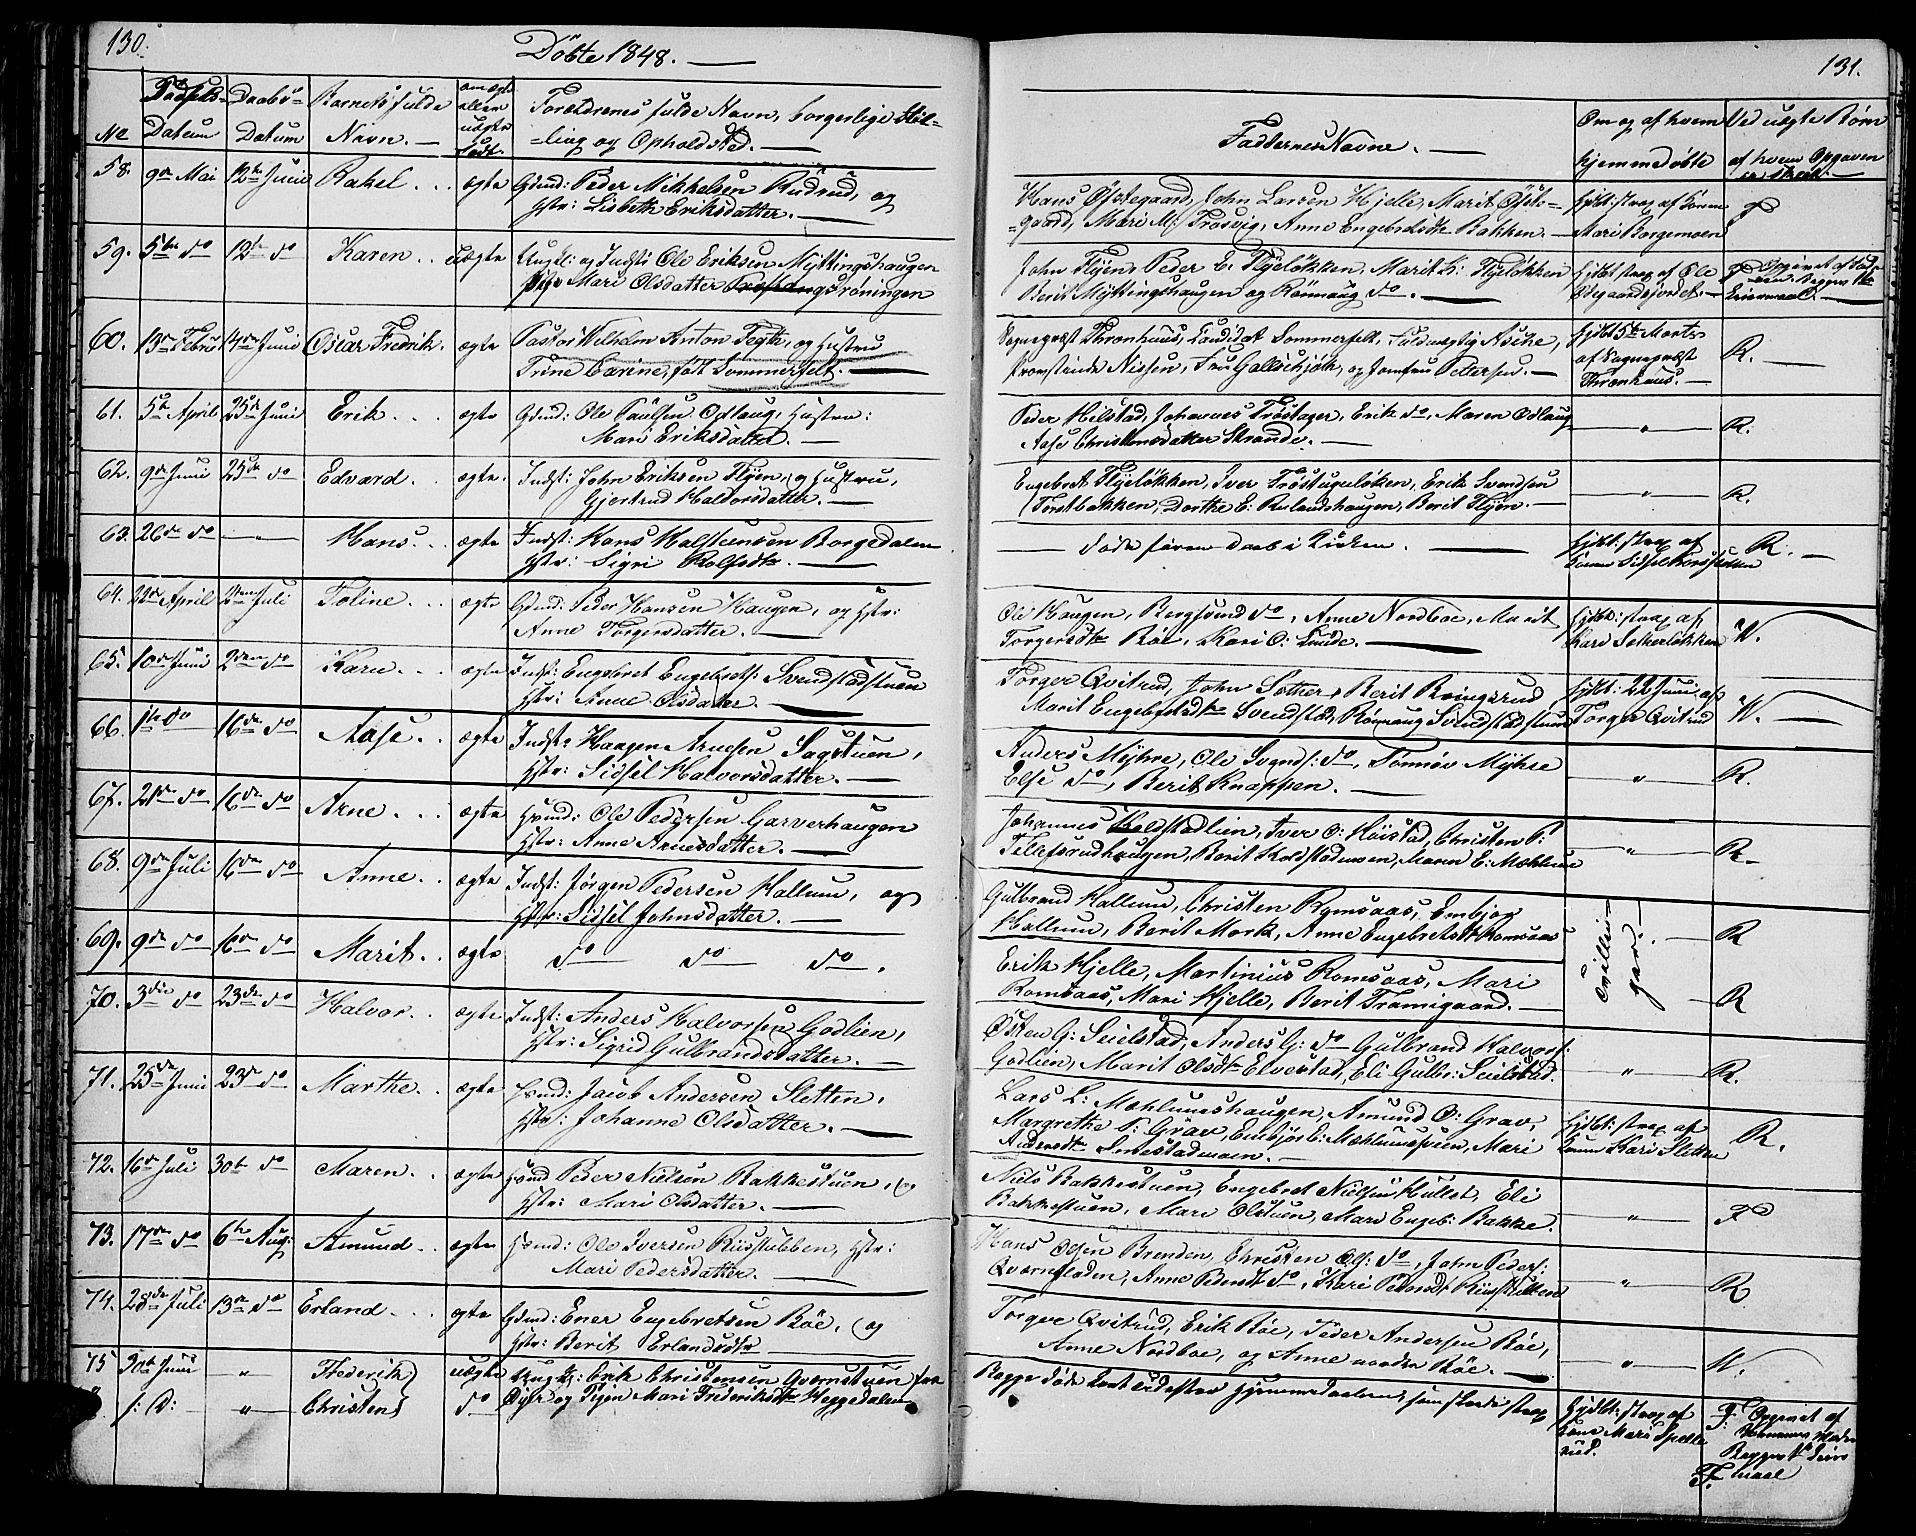 130.
Döbte 1848.
No
Fødsels-Datum
Daabs-Datum
Barnets fulde Navn.
om ægte eller uægte født.
Forældrenes fulde Navn, borgerlige Stil-
-ling og Opholdsted.
58. 9de Mai 12te Junii Rakel ægte Gdmd: Peder Mikkelsen Rudrud, og
Hstr: Lisbeth Eriksdatter.
59. 5te do 12te do Karen uægte Ungkl: og Indst: Ole Eriksen Myttingshaugen
Pige Mari Olsdatter
60. 13de Febru 14de Junii Oscar Fredrik ægte Pastor Wilhelm Anton Fegth, og Hustru
Trine Carine, født Sommerfelt.
61. 5te April 25de Juni Erik ægte Gdmd: Ole Paulsen Odlaug, Hustru:
Mari Eriksdatter.
62. 9de Juni 25de do Edvard ægte Indst: John Eriksen Flyen, og Hustru,
Gjertrud Haldorsdatter.
63. 26de do " Hans ægte Indst: Hans Halstensen Borgedalen
Hstr: Sigri Rolfsdtr.
64. 22de April 2den Juli Toline ægte Gdmd: Peder Hansen Haugen, og Hstr:
Anne Torgersdatter.
65. 10de Juni 2den do Kari ægte Indst: Engebret Engebrets: Svendstadstuen
Hstr: Anne Olsdatter.
66. 1ste do 16de do Aase ægte Indst: Haagen Arnesen Sagstuen,
Hstr: Sidsel Halvorsdatter.
67. 21de do 16de do Arne ægte Hmd: Ole Pedersen Garverhaugen
Hstr: Anne Arnesdatter.
68. 9de Juli 16de do Anne ægte Indst: Jørgen Pedersen Kallum, og
Hstr: Sidsel Johnsdatter.
69. 9de do 16de do Marit ægte do do do.
70. 3die do 23de do Halvor ægte Indst: Anders Halvorsen Godlien,
Hstr: Sigrid Gulbrandsdatter.
71. 25de Juni 23de do Marthe ægte Hmd: Jacob Andersen Sletten,
Hstr: Johanne Olsdatter.
72. 16de Juli 30te do Maren ægte Hmd Peder Nielsen Bakkestuen, og
Hstr: Mari Olsdatter.
73. 17de do 6te Aug: Amund ægte Hmd: Ole Iversen Riisstubben, Hstr:
Mari Pedersdatter.
74. 28de Juli 13de do Erland ægte Gdmd: Ener Engebretsen Bøe, og
Hstr: Berit Erlandsdtr
75 30te Juni " Frederik uægte Ungk: Erik Christensen Qvernstuen fra
f: D: " Christen do Øyer og Pigen Mari Fredriksdtr Heggedalen
131.
Faddernes Navne.
Om og af hvem hjemmedøbte
Ved uægte Børn af hvem Opgaven er skeet.
Hans Øfstegaard, John Larsen Hjelle, Marit Øfste-
-gaard, Mari M: Trosvig, Anne Engebretsdtr Bakken.
Hjdbt: strax af Konen Mari Borgemoen
John Flyen, Peder E: Flyeløkken, Marit L: Flyeløkken
Berit Myttingshaugen og Rönnaug do.
Hjdbt strax af Ole
Sognepræst Thronhuus, Candidat Sommerfelt, Fuldmægtig Asche,
Provstinde Nissen, Fru Gallschjøth, og Jomfru Pettersen.
Hjdbt 5te Marts af Sognepræst Thronhuus.
R.
Peder Hilstad, Johannes Frøstager, Erik do, Maren Odlaug
Aase Christensdatter Strande.
"
R.
Engebret Flyeløkken, Iver Frøstugeløken, Erik Svendsen
Torstbakken, Dorthe E: Rulandshaugen, Berit Flyen.
"
R.
døde førend Daab i Kirken.
Hjdbt: strax af Konen Sidsel
R.
Ole Haugen, Bergsvend do, Anne Nordboe, Marit
Torgersdtr Böe, Kari O: Lunde.
Hjdbt: strax af Kari
W.
Torger Qvitrud, John Sother, Berit Bringsrud
Marit Engebretsdtr Svendstad, Rönnaug Svendstadstuen
Hjdbt: 22 Juni, af Torger Qvitrud
W.
Anders Myhre, Ole Svends: do, Tönnöv Myhre
Else do, Berit Knappen.
"
R.
Johannes Koldstadlien, Iver O: Høistad, Christen P:
Tellefsrudhaugen, Berit Koldstadmoen, Maren E: Mæhlum
"
R
Gulbrand Kallum, Christen Romsaas, Embjør
Hallum, Berit Mork, Anne Engebretsdtr Romsaas
Tvillin-
ger.
R
Erik Hjelle, Martinius Romsaas, Mari
Romsaas, Mari Hjelle, Berit Framigaard.
R
Østen G: Seielstad, Anders G: do Gulbrand Halvors:
Godlien, Marit Olsdtr Elvestad, Eli Gulbr: Seielstad.
"
R.
Lars L: Mæhlumshaugen, Amund O: Grav,
Margrethe P: Grav, Embjør E: Mæhlumsveen, Mari
Hjdbt: strax af Konen Kari Sletten
R.
Niels Bakkestuen, Engebret Nielsen Kulset, Eli
Bakkestuen, Mari Olstuen, Mari Engeb: Bakke.
"
F
Hans Olsen Brenden, Christen Ols: do, John Peders:
Qværnfladen, Anne Pedersdtr do, Kari Pedersdtr Riisstubben
"
R
Torger Qvitrud, Erik Bøe, Peder Andersen Bøe,
Anne Nordboe, og Anne nordre Bøe.
"
W.
Begge døde kort derefter hjemmedaaben, som skede strax
Hjdbt: strax af Kone Mari
F: Opgivet af
F.